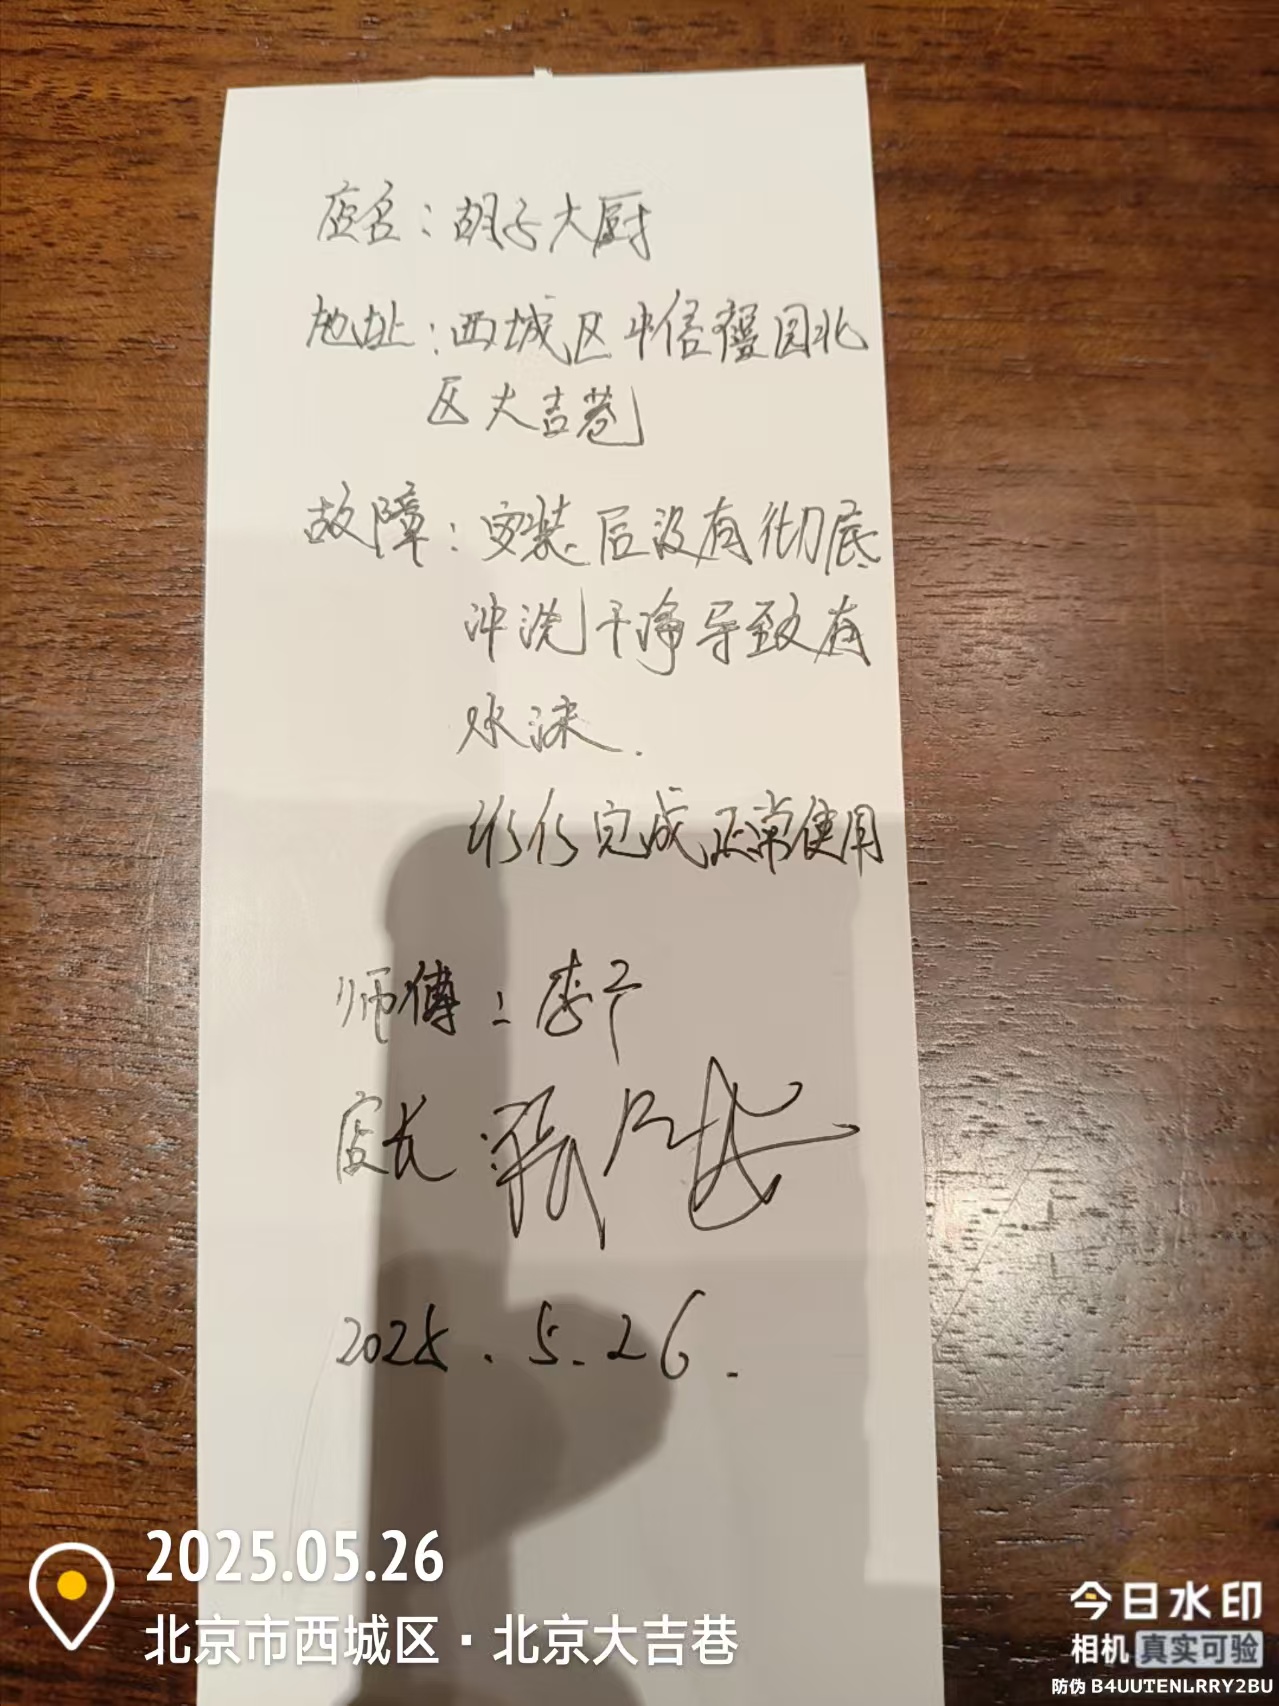 店名：胡子大厨
地址：西城区中信馥园北
区大吉巷
故障：安装后没有彻底
冲洗干净导致有
水沫.
修完成正常使用
师傅：李宁
店长：张
2025.5.26.
2025.05.26
北京市西城区·北京大吉巷
今日水印
相机 真实可验
防伪 B4UUTENLRRY2BU